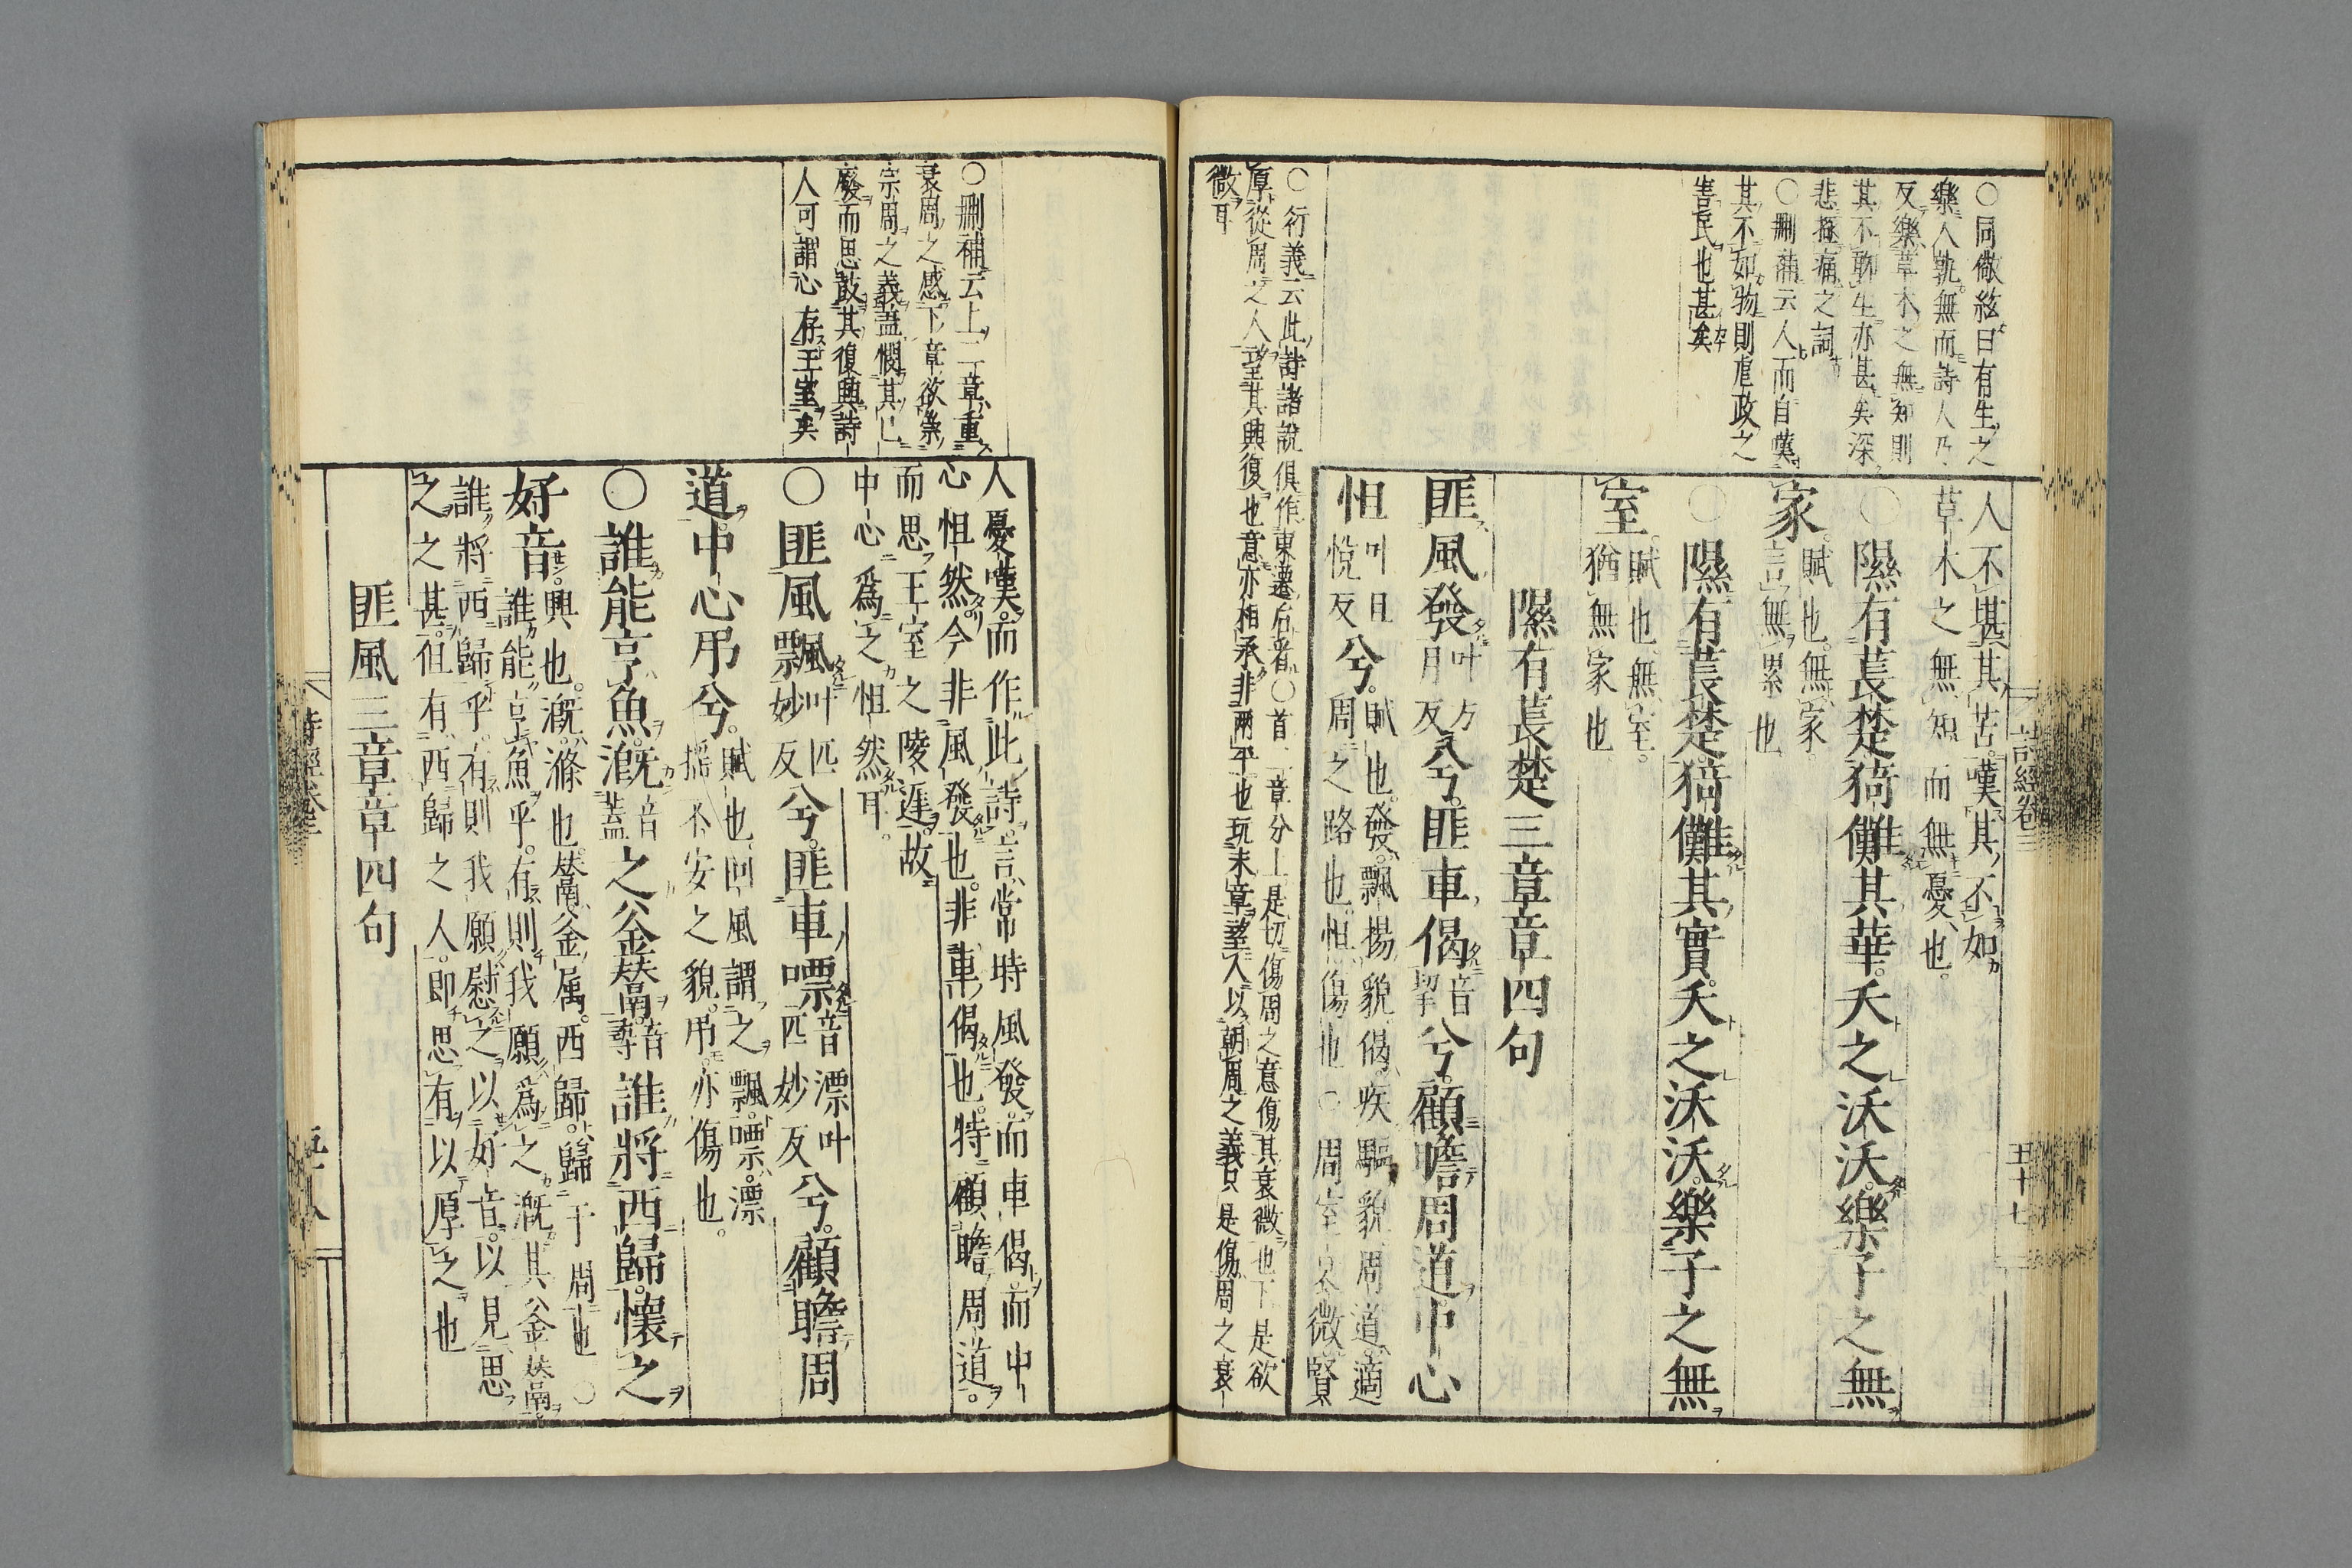 ○同儆絃曰有生之
樂人孰無而詩人乃
反樂草木之無知則
其不聊生亦甚矣深
悲極痛之詞
○刪補云人而自嘆
其不如物則虐政之
害民也甚矣
人不堪其苦。嘆其不如
草木之無知而無憂也。
○隰有萇楚。猗儺其華。夭之沃沃。樂子之無
家。賦也。無家。
言無累也
○隰有萇楚。猗儺其實。夭之沃沃。樂子之無
室。賦也。無室。
猶無家也
隰有萇楚三章章四句
匪風發叶方月反兮。匪車偈音挈兮。顧瞻周道。中心
怛叶旦悅反兮。賦也。發。飄揚貌。偈。疾驅貌。周道。適
周之路也。怛。傷也○周室衰微。賢
○衍義云此詩諸說俱作東遷后者○首二章分上是切傷周之意傷其衰微也下是欲
厚從周之人望其興復也意亦相承非兩平也玩末章望人以朝周之義只是傷周之衰
微耳
詩經卷三
五十七
○刪補云上二章重
衰周之感下章欲崇
宗周之義蓋憫其已
廢而思鼓其復興詩
人可謂心存王室矣
人憂嘆而作此詩。言常時風發而車偈。而中
心怛然。今非風發也。非車偈也。特顧瞻周道。
而思王室之陵遲。故
中心爲之怛然耳。
○匪風飄叶匹妙反兮。匪車嘌音漂叶匹妙反兮。顧瞻周
道。中心弔兮。賦也。回風謂之飄。嘌。漂
搖不安之貌。弔亦傷也。
○誰能亨魚。溉音蓋之釜鬵。音尋誰將西歸。懷之
好音。興也。溉。滌也。鬵。釜屬。西歸。歸于周也○
誰能亨魚乎。有則我願爲之溉其釜鬵。
誰將西歸乎。有則我願慰之以好音。以見思
之之甚。但有西歸之人。即思有以厚之也
匪風三章章四句
詩經卷三
五十八